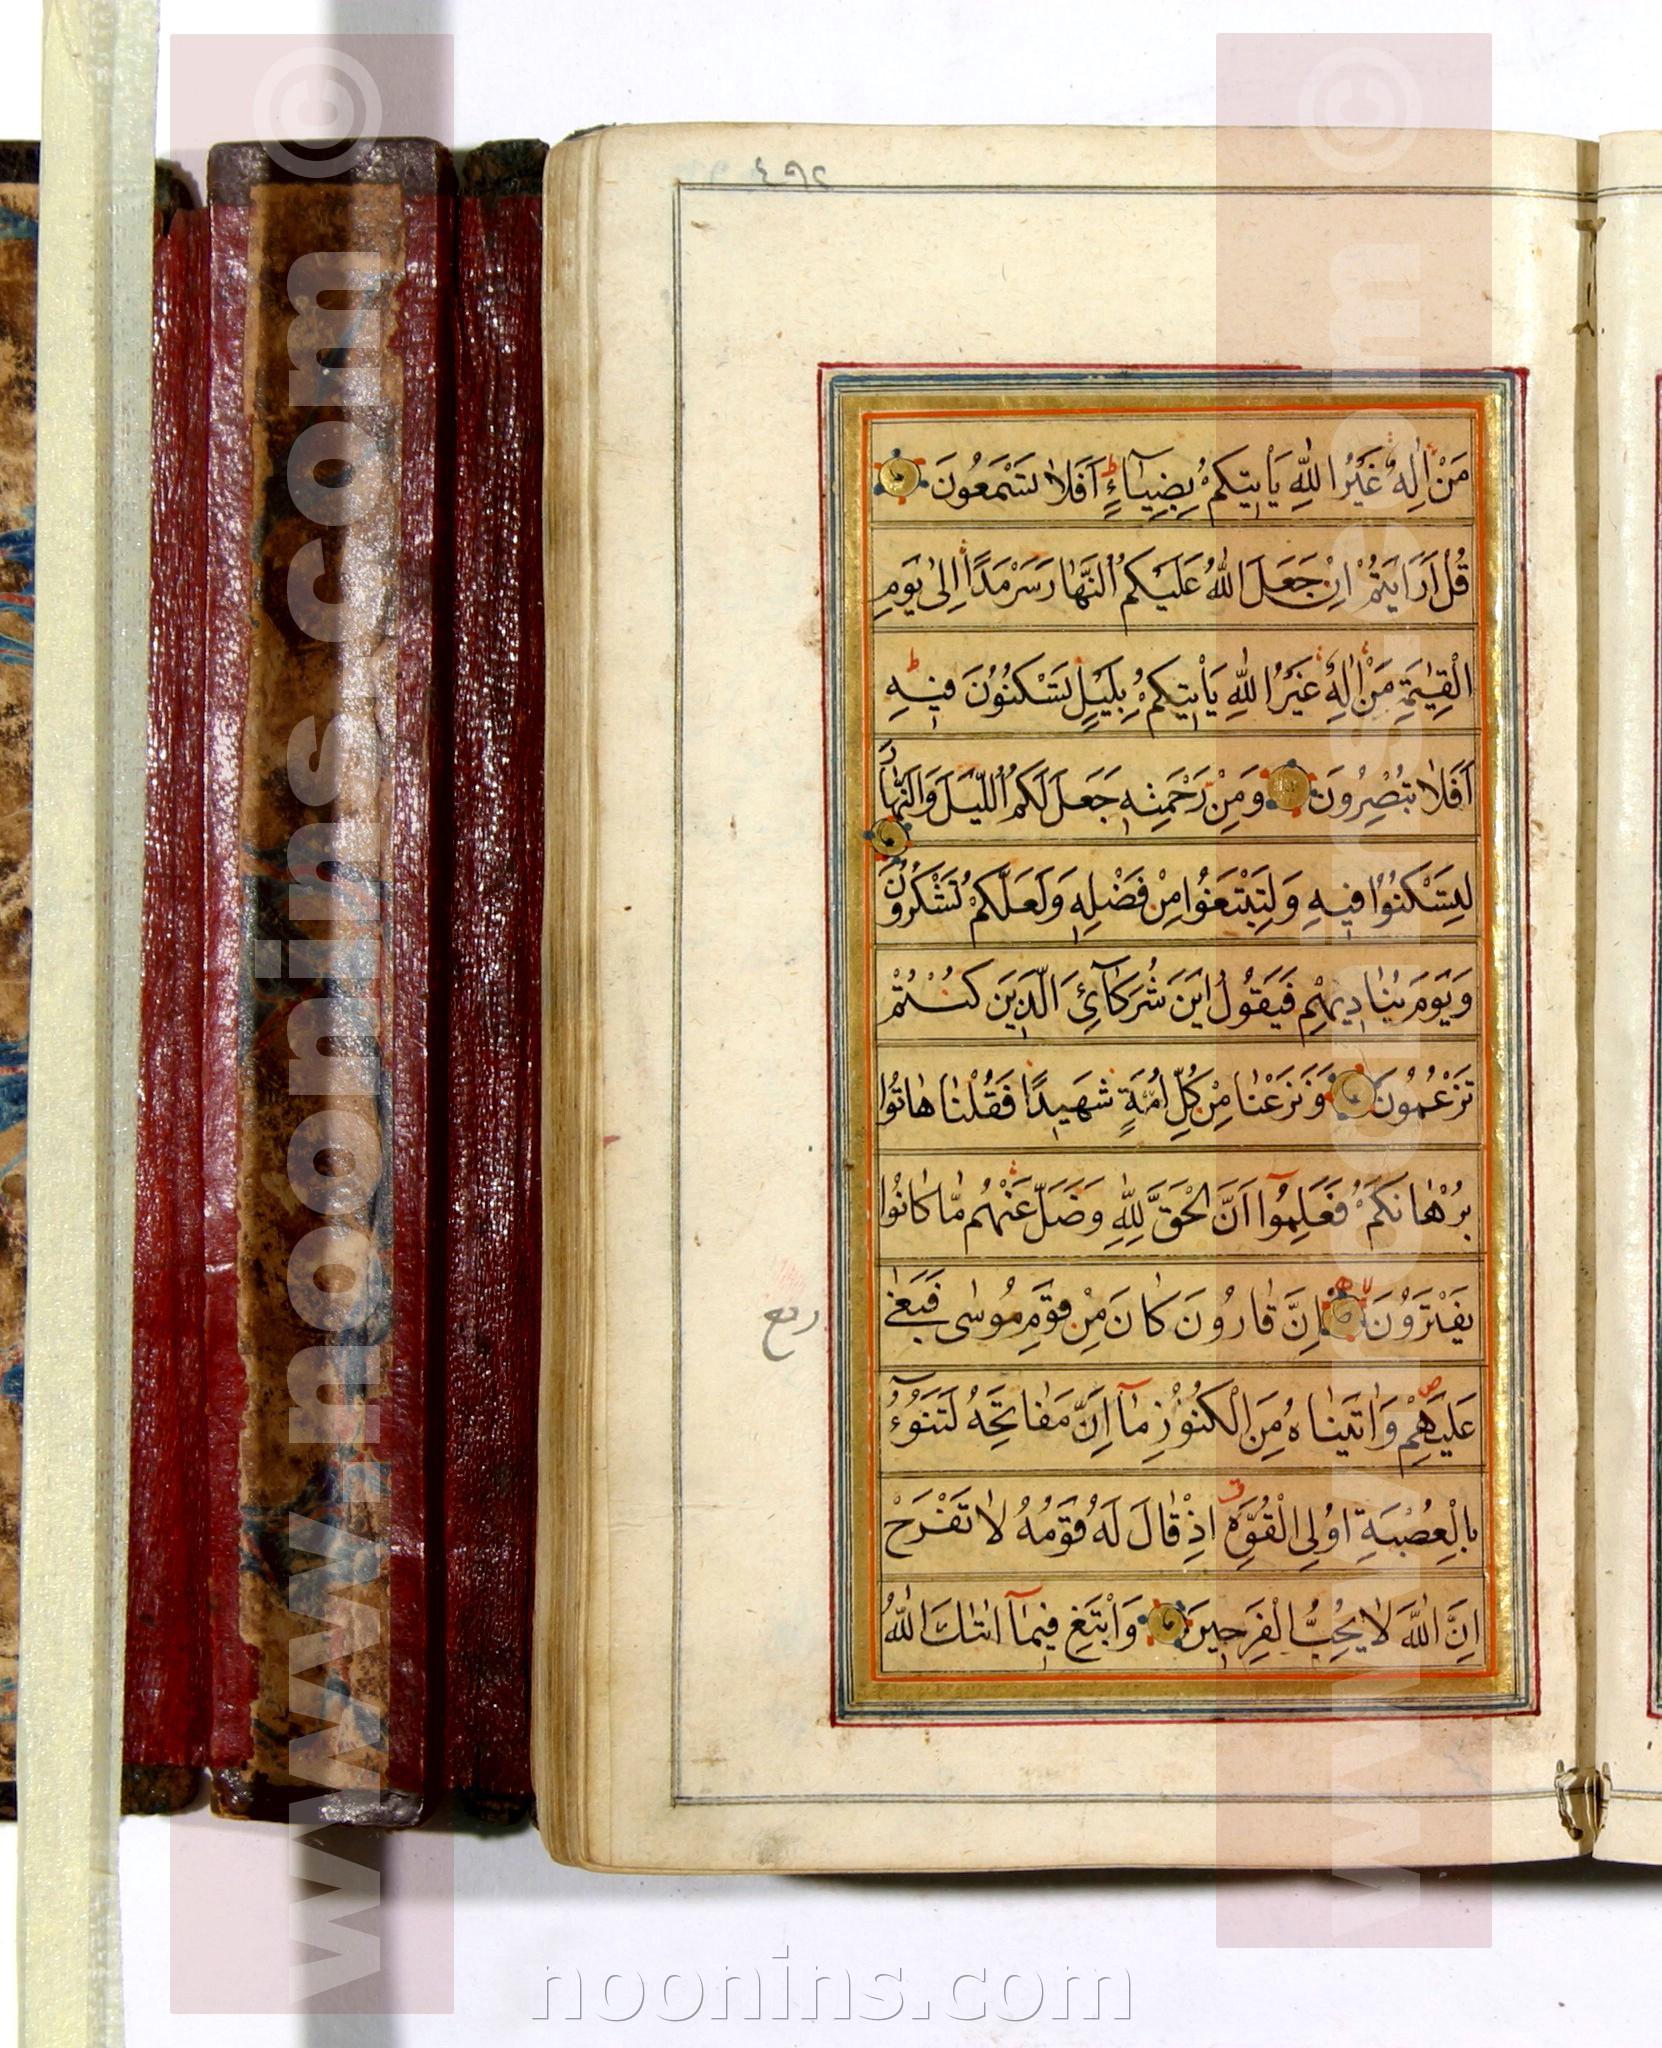 مَنْ اِلٰهٌ غَيْرُ اللّٰهِ يَاْتيكُمْ بِضِيٰٓاءٍ اَفَلاٰ تَسْمَعُونَ
قُلْ اَرَاَيْتُمْ اِنْ جَعَلَ اللّٰهُ عَلَيْكُمُ النَّهٰارَ سَرْمَدًا اِلىٰ يَوْمِ
الْقِيٰمَةِ مَنْ اِلٰهٌ غَيْرُ اللّٰهِ يَاْتيكُمْ بِلَيْلٍ تَسْكُنُونَ فيهِ
اَفَلاٰ تُبْصِرُونَ وَمِنْ رَحْمَتِه جَعَلَ لَكُمُ اللَّيْلَ وَالنَّهٰارَ
لِتَسْكُنُوا فيهِ وَلِتَبْتَغُوا مِنْ فَضْلِه وَلَعَلَّكُمْ تَشْكُرُونَ
وَيَوْمَ يُنٰاديهِمْ فَيَقُولُ اَيْنَ شُرَكٰٓائِىَ الَّذينَ كُنْتُمْ
تَزْعُمُونَ وَنَزَعْنٰا مِنْ كُلِّ اُمَّةٍ شَهيدًا فَقُلْنٰا هٰاتُوا
بُرْهٰانَكُمْ فَعَلِمُوٓا اَنَّ الْحَقَّ لِلّٰهِ وَضَلَّ عَنْهُمْ مٰا كٰانُوا
يَفْتَرُونَ اِنَّ قٰارُونَ كٰانَ مِنْ قَوْمِ مُوسٰى فَبَغٰى
عَلَيْهِمْ وَاٰتَيْنٰاهُ مِنَ الْكُنُوزِ مٰٓا اِنَّ مَفٰاتِحَهُ لَتَنُوٓءُ
بِالْعُصْبَةِ اُولِى الْقُوَّةِ اِذْ قٰالَ لَهُ قَوْمُهُ لاٰ تَفْرَحْ
اِنَّ اللّٰهَ لاٰ يُحِبُّ الْفَرِحينَ وَابْتَغِ فيمٰٓا اٰتٰىكَ اللّٰهُ
www.noonins.com ©
www.noonins.com ©
noonins.com